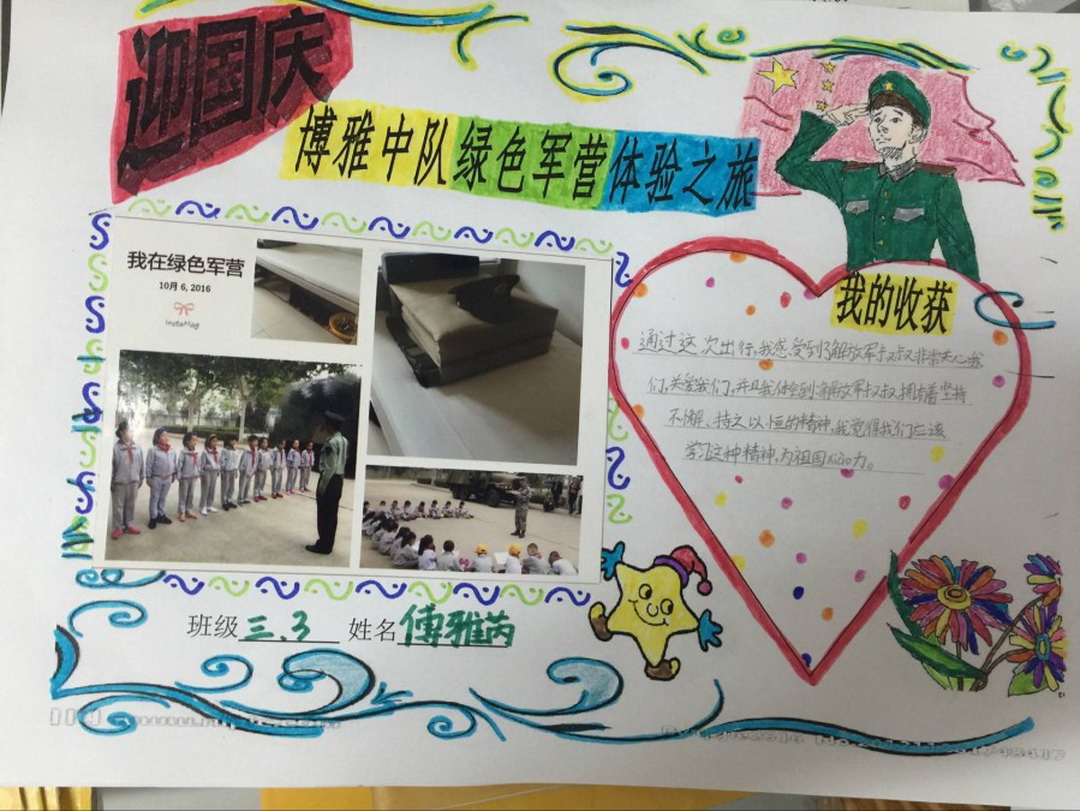 迎国庆
博雅中队绿色军营体验之旅
我在绿色军营
10月 6, 2016
InstaMag
我的收获
通过这次出行,我感受到了解放军叔叔非常关心我
们,关爱我们,并且我体会到了解放军叔叔拥有着坚持
不懈、持之以恒的精神,我觉得我们应该
学习这种精神,为祖国效力。
班级三.3 姓名傅雅芮